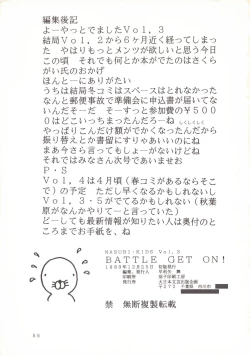 編集後記
よーやっとでましたVol. 3
結局Vol. 2から6ヶ月近く経ってしまっ
た やはりもっとメンツが欲しいと思う今日
この頃 それでも何とか本がでたのはさくら
がい氏のおかげ
ほんとーにありがたい
うちは結局冬コミはスペースはとれなかった
なんと郵便事故で準備会に申込書が届いてな
いんだそーだ そーすっと参加費の¥500
0はどこいっちまったんだろーね しくしくしく
やっぱりこんだけ額がでかくなったんだから
振り替えとか書留にすりゃあいいのにね
まあ今さら言ってもしょーがないけどね
それではみなさん次号であいませお
P・S
Vol. 4は4月頃(春コミがあるならそこ
で)の予定 ただし早くなるかもしれないし
Vol. 3・5がでてるかもしれない(秋葉
原がなんかやりてーと言っていた)
どーしても最新情報が知りたい人は奥付のと
ころまでお手紙を、ね
MABURI・KIDS Vol. 3
BATTLE GET ON!
禁 無断複製転載